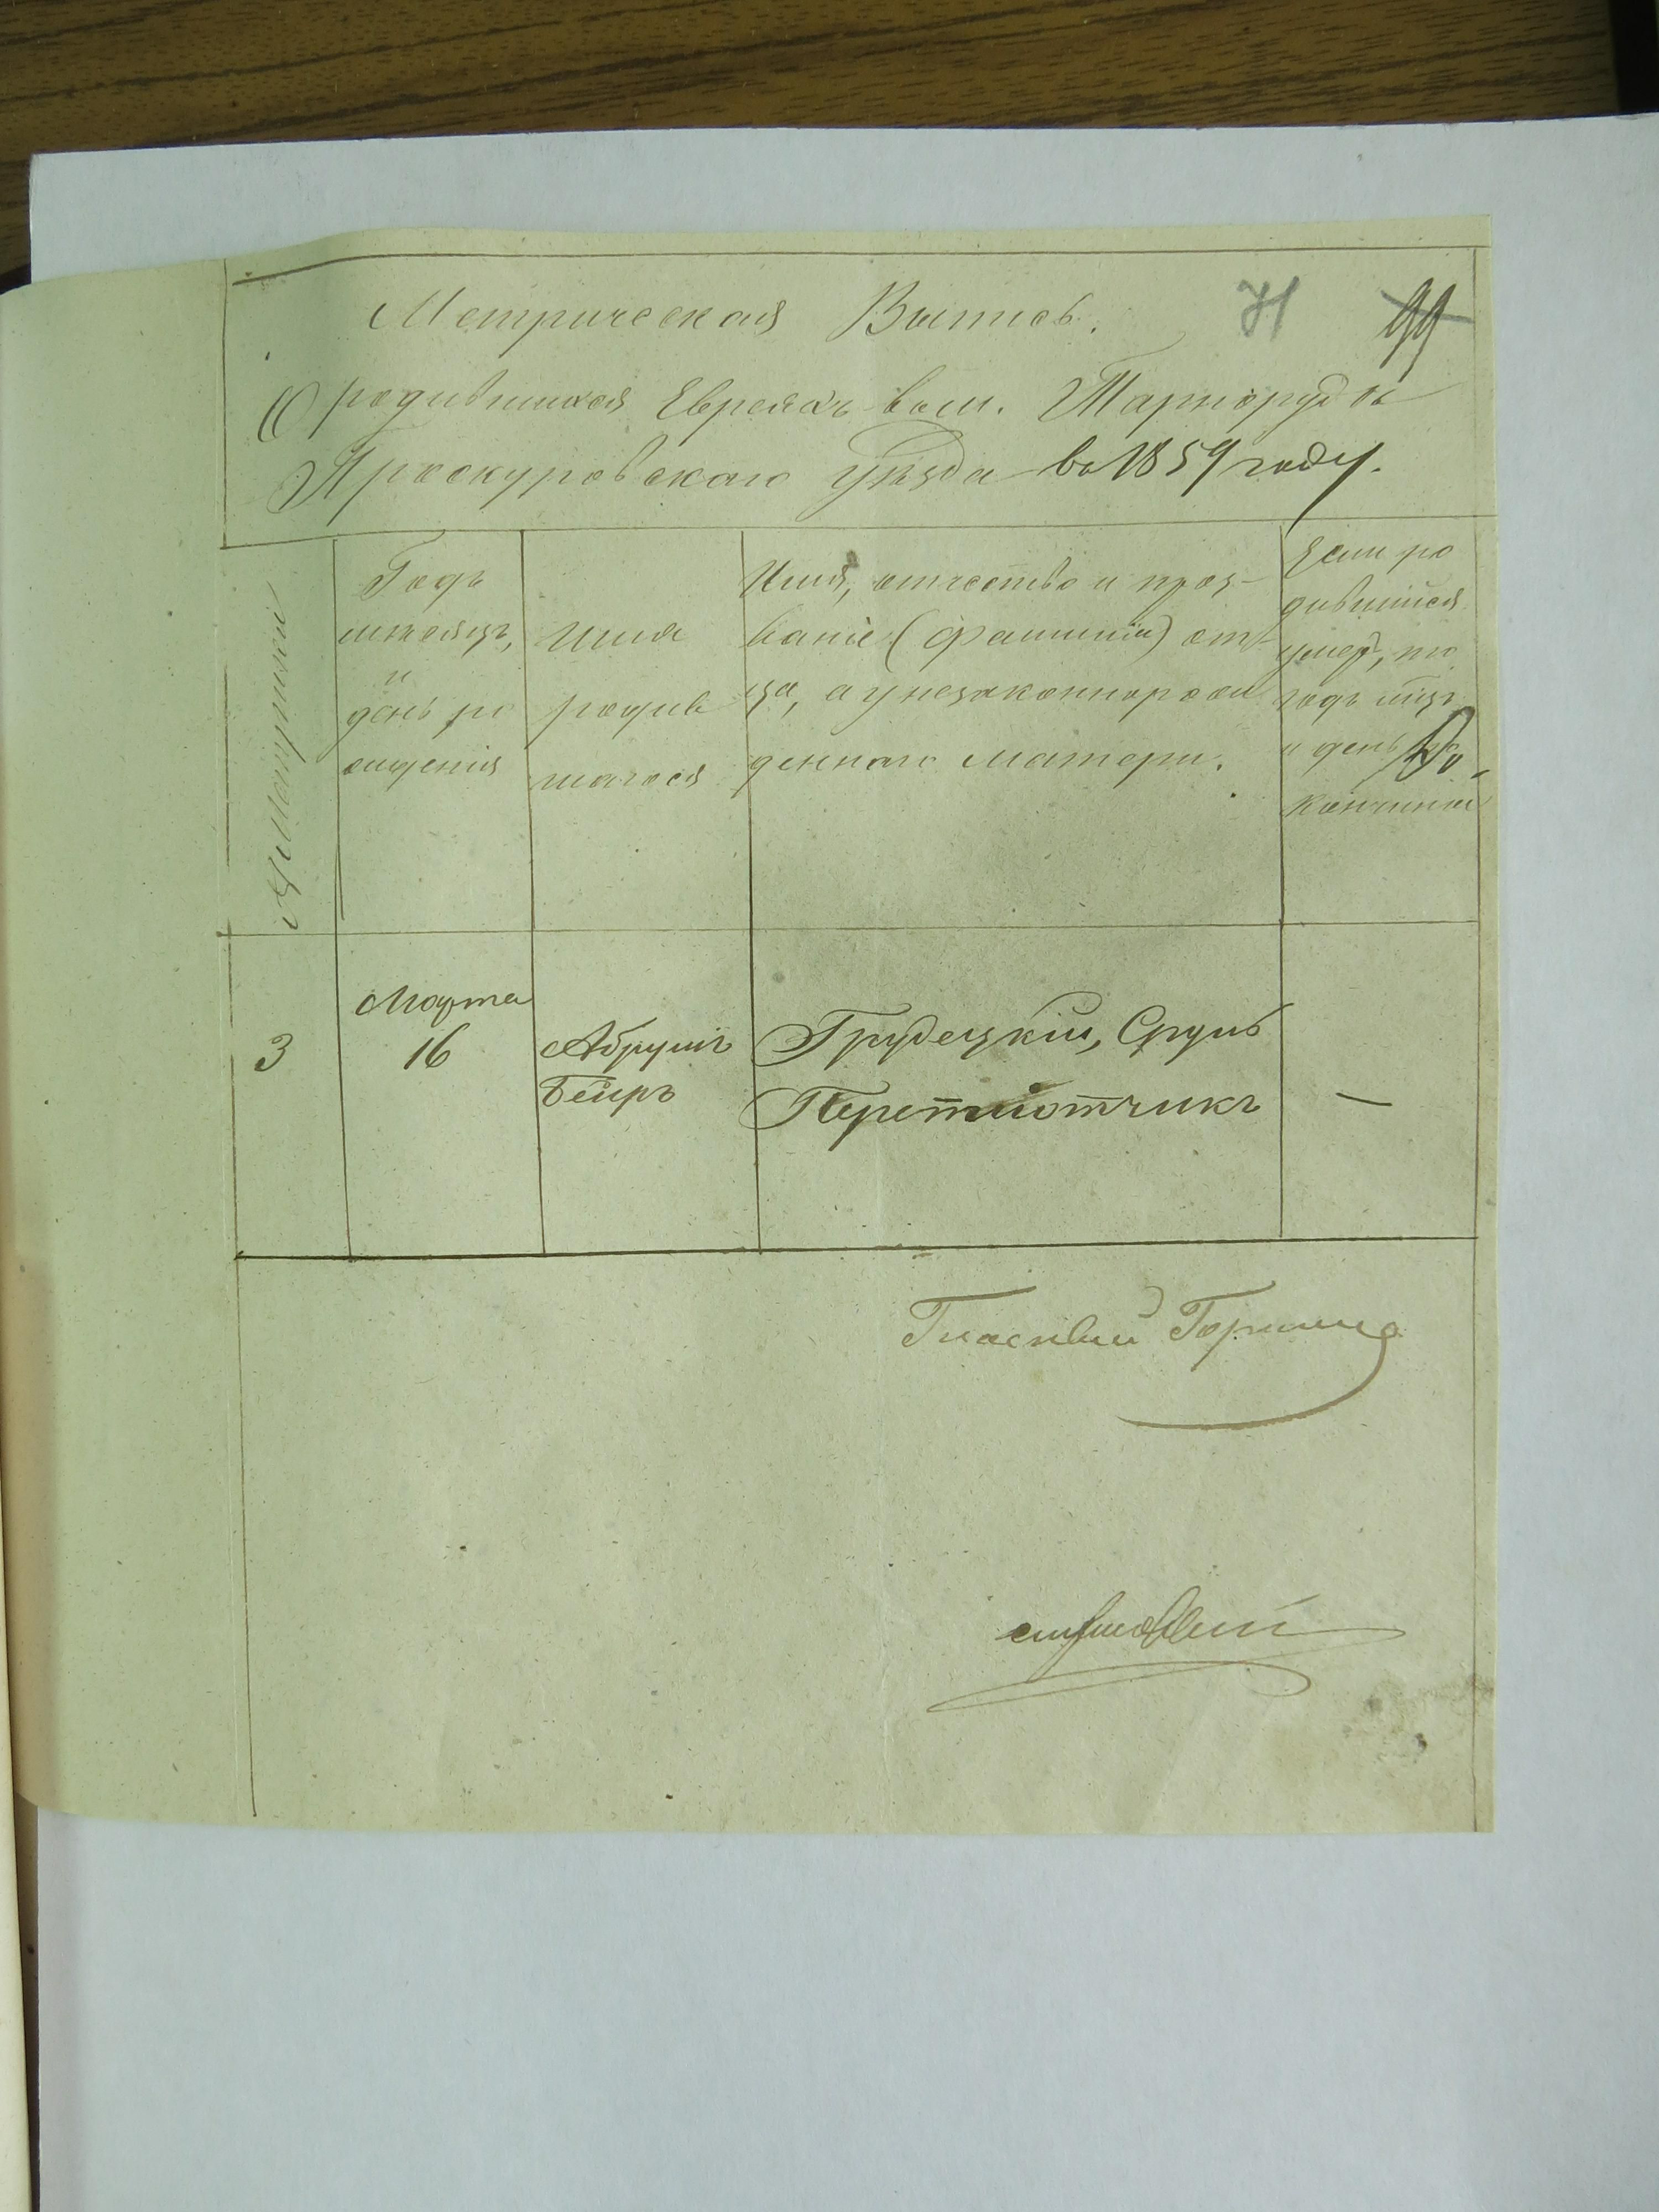 Метрическая Выпись.
71
99
О родившихся Евреяхъ въ м. Тарнорудѣ
Проскуровского уѣзда въ 1859 году.
Годъ
мѣсяцъ,
и
день ро
жденія
Имя
родив
шагося
Имя, отчество и проз-
ваніе (фамилія) от-
ца, а у незаконнорож
деннаго матери.
Если ро
дившійся
умеръ, то
годъ мѣцъ
и день
кончины
3
Марта
16
Абрумъ
Беиръ
Грудецкій, Сруль